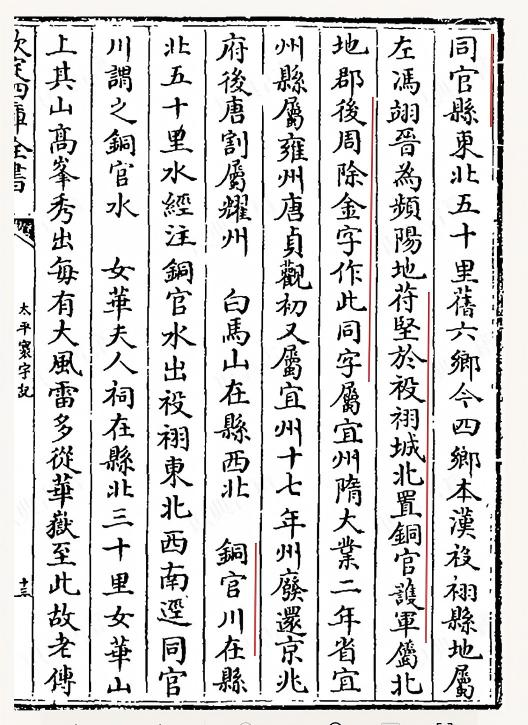 同官縣東北五十里舊六鄉今四鄉本漢祋祤縣地屬
左馮翊晉為頻陽地苻堅於祋祤城北置銅官護軍屬北
地郡後周除金字作此同字屬宜州隋大業二年省宜
州縣屬雍州唐貞觀初又屬宜州十七年州廢還京兆
府後唐割屬耀州　白馬山在縣西北　銅官川在縣
北五十里水經注銅官水出祋祤東北西南逕同官
川謂之銅官水　女華夫人祠在縣北三十里女華山
上其山高峯秀出每有大風雷多從華嶽至此故老傳
欽定四庫全書
太平寰宇記
十三